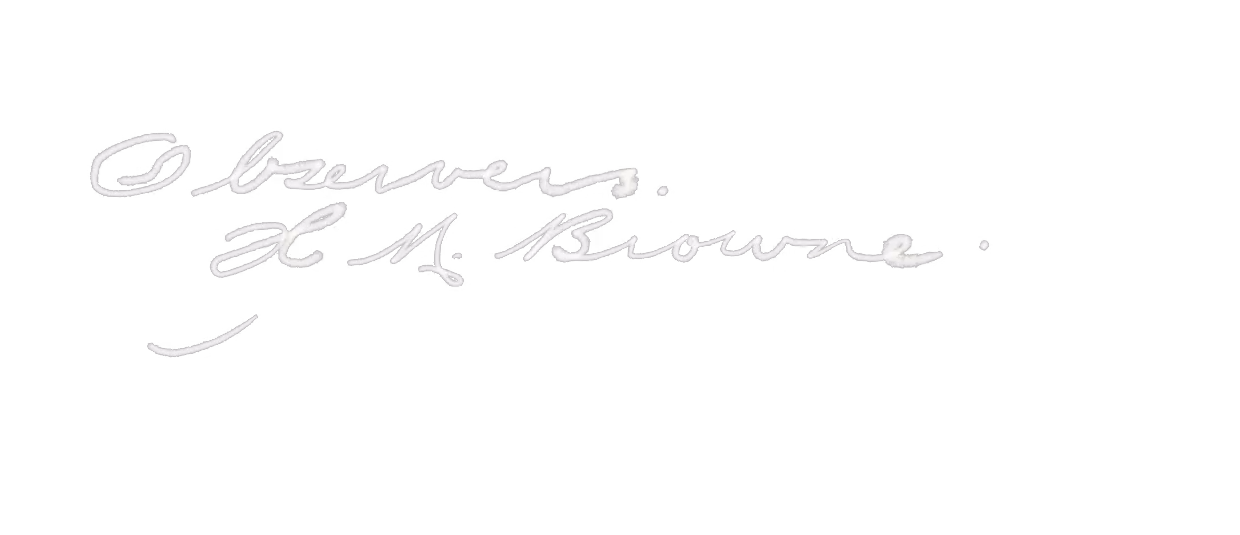 Observers.
H. M. Browne.